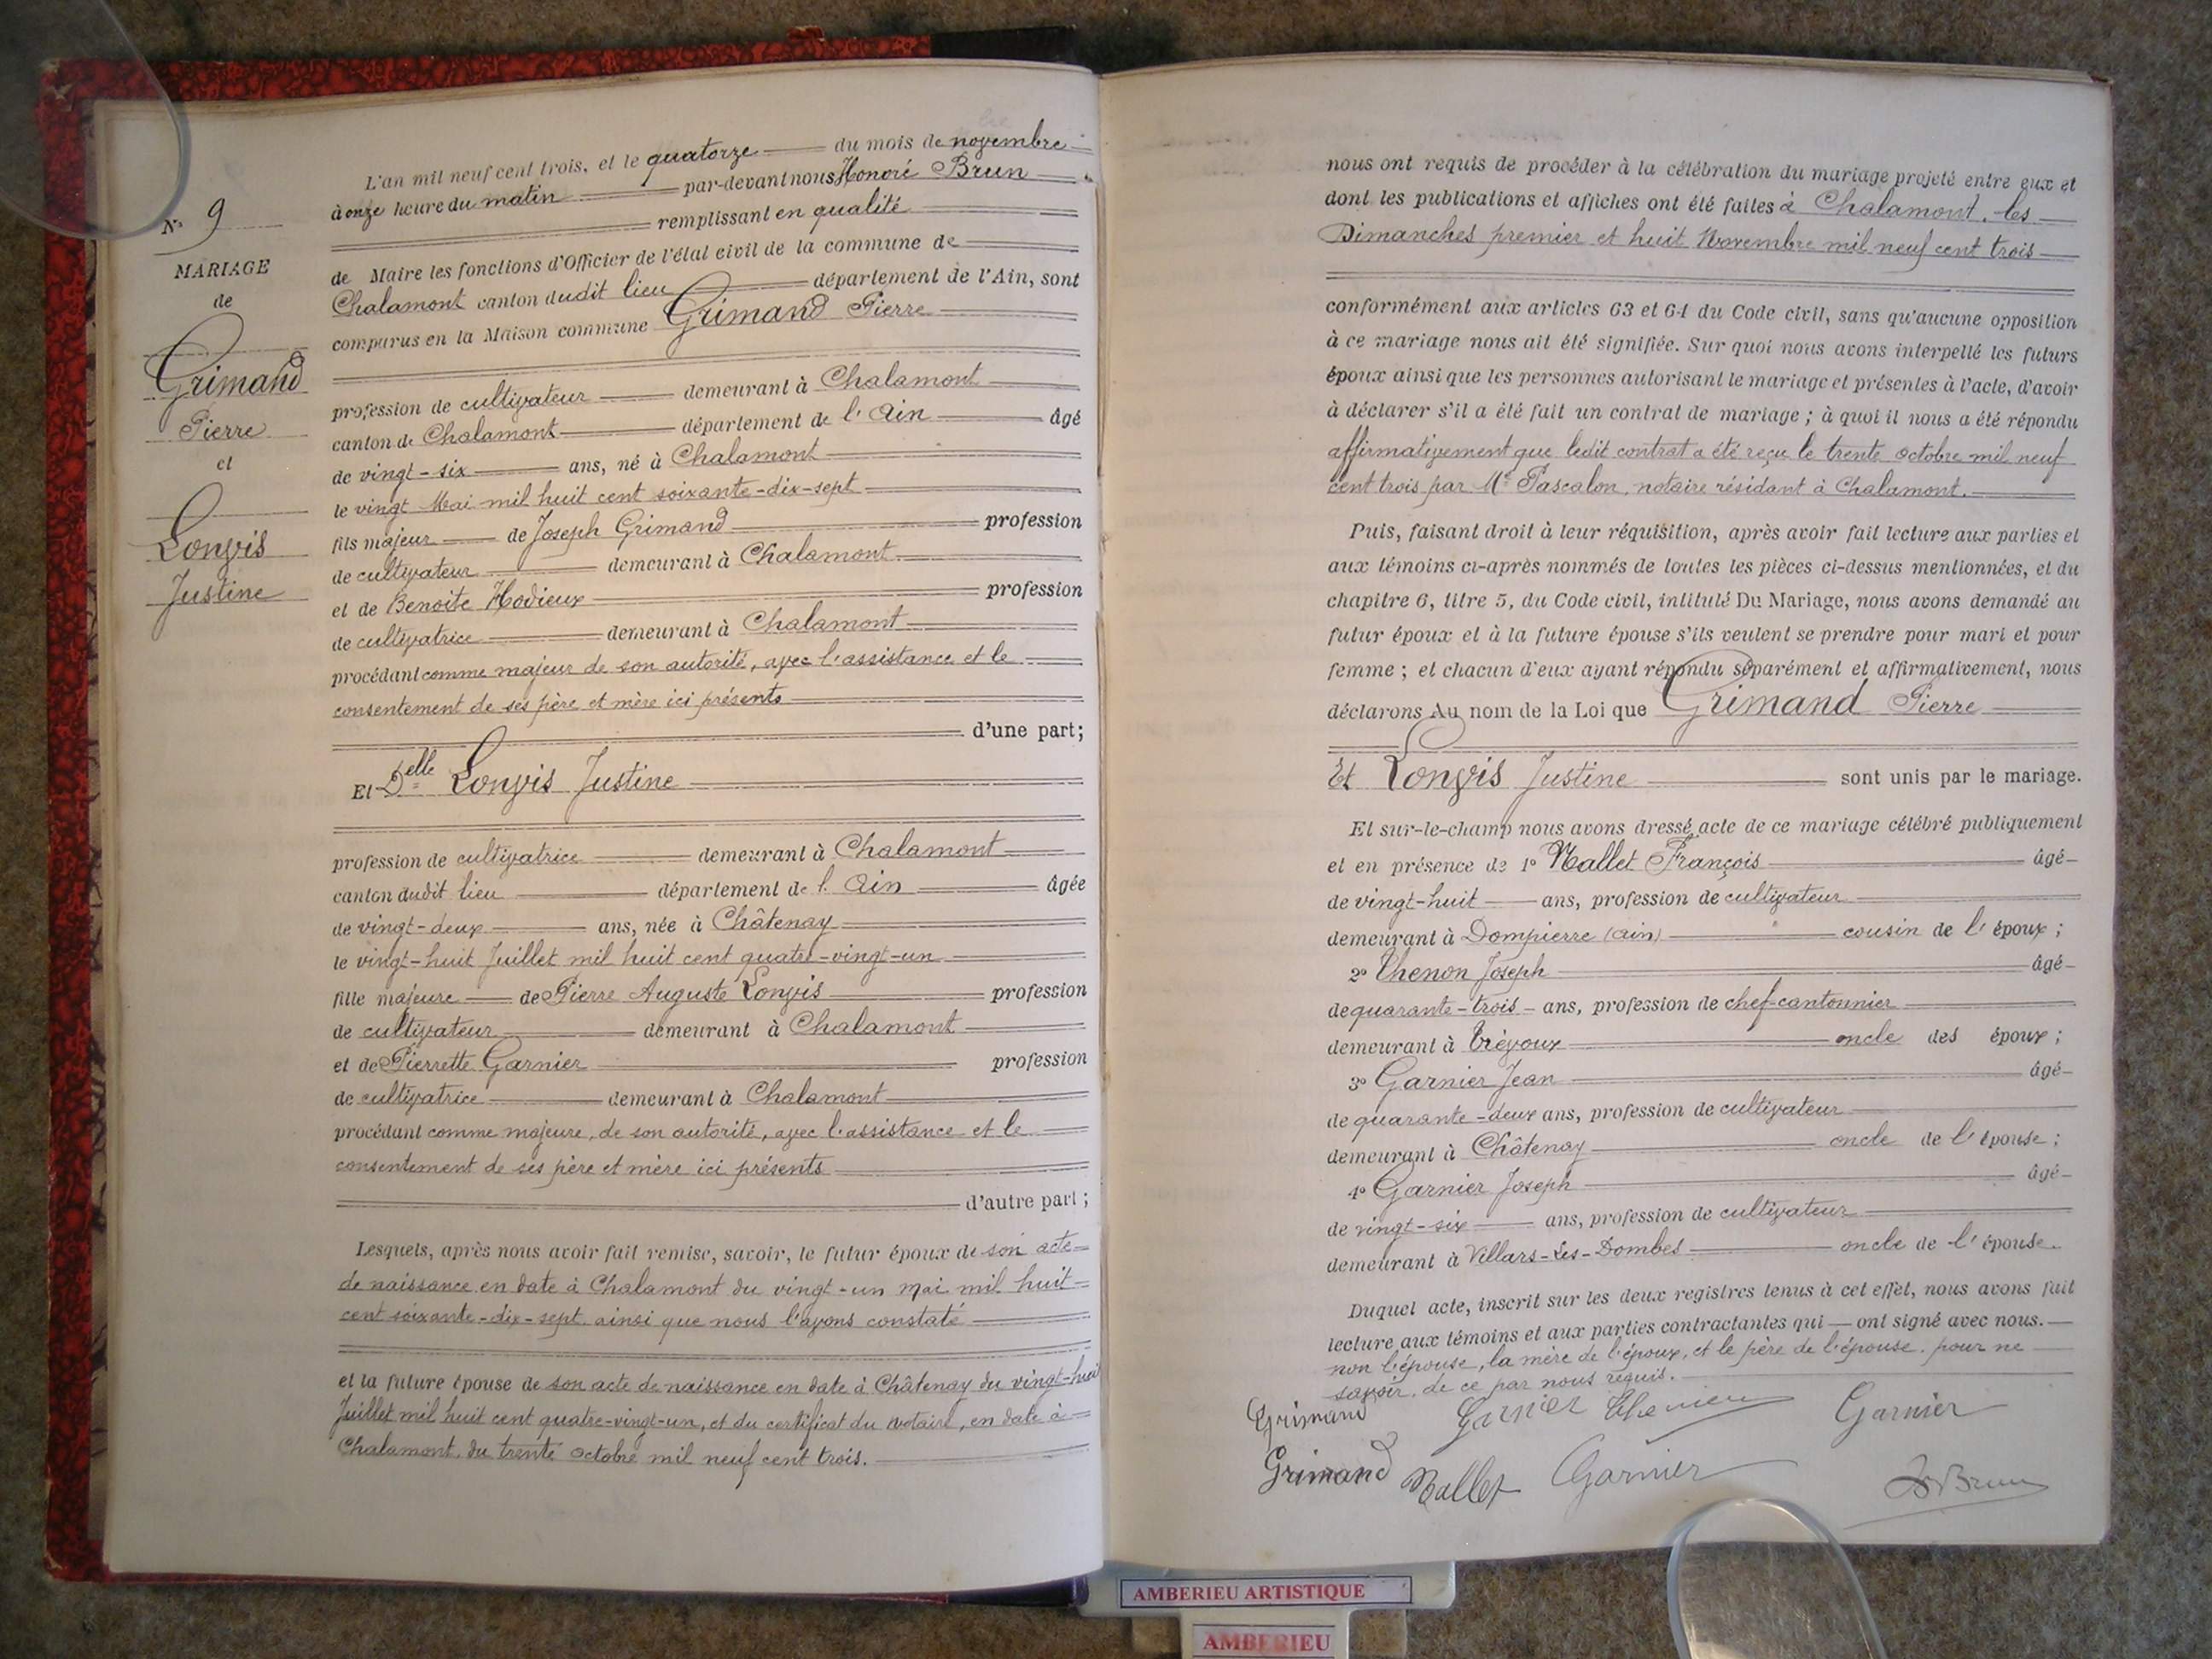 N° 9
MARIAGE
de
Grimand
Pierre
et
Longis
Justine
L'an mil neuf cent trois, et le quatorze du mois de novembre
à onze heure du matin par-devant nous Honoré Brun
remplissant en qualité
de Maire les fonctions d'Officier de l'état civil de la commune de
Chalamont canton dudit lieu département de l'Ain, sont
comparus en la Maison commune Grimand Pierre
profession de cultivateur demeurant à Chalamont
canton de Chalamont département de l'Ain âgé
de vingt-six ans, né à Chalamont
le vingt Mai mil huit cent soixante-dix-sept
fils majeur de Joseph Grimand profession
de cultivateur demeurant à Chalamont
et de Benoite Hodieux profession
de cultivatrice demeurant à Chalamont
procédant comme majeur de son autorité, avec l'assistance et le
consentement de ses père et mère ici présents
d'une part;
Et Delle Longis Justine
profession de cultivatrice demeurant à Chalamont
canton dudit lieu département de l'Ain âgée
de vingt-deux ans, née à Châtenay
le vingt-huit Juillet mil huit cent quatre-vingt-un
fille majeure de Pierre Auguste Longis profession
de cultivateur demeurant à Chalamont
et de Pierrette Garnier profession
de cultivatrice demeurant à Chalamont
procédant comme majeure, de son autorité, avec l'assistance et le
consentement de ses père et mère ici présents
d'autre part;
Lesquels, après nous avoir fait remise, savoir, le futur époux de son acte
de naissance en date à Chalamont du vingt-un mai mil huit
cent soixante-dix-sept ainsi que nous l'avons constaté
et la future épouse de son acte de naissance en date à Châtenay du vingt-huit
Juillet mil huit cent quatre-vingt-un, et du certificat du notaire, en date à
Chalamont du trente octobre mil neuf cent trois.
nous ont requis de procéder à la célébration du mariage projeté entre eux et
dont les publications et affiches ont été faites à Chalamont, les
Dimanches premier et huit Novembre mil neuf cent trois
conformément aux articles 63 et 64 du Code civil, sans qu'aucune opposition
à ce mariage nous ait été signifiée. Sur quoi nous avons interpellé les futurs
époux ainsi que les personnes autorisant le mariage et présentes à l'acte, d'avoir
à déclarer s'il a été fait un contrat de mariage; à quoi il nous a été répondu
affirmativement que ledit contrat a été reçu le trente octobre mil neuf
cent trois par Me Pascalon, notaire résidant à Chalamont.
Puis, faisant droit à leur réquisition, après avoir fait lecture aux parties et
aux témoins ci-après nommés de toutes les pièces ci-dessus mentionnées, et du
chapitre 6, titre 5, du Code civil, intitulé Du Mariage, nous avons demandé au
futur époux et à la future épouse s'ils veulent se prendre pour mari et pour
femme; et chacun d'eux ayant répondu séparément et affirmativement, nous
déclarons Au nom de la Loi que Grimand Pierre
Et Longis Justine sont unis par le mariage.
Et sur-le-champ nous avons dressé acte de ce mariage célébré publiquement
et en présence de 1° Mallet François âgé
de vingt-huit ans, profession de cultivateur
demeurant à Dompierre (Ain) cousin de l'époux;
2° Thenon Joseph âgé
de quarante-trois ans, profession de chef-cantonnier
demeurant à Trévoux oncle des époux;
3° Garnier Jean âgé
de quarante-deux ans, profession de cultivateur
demeurant à Châtenay oncle de l'épouse;
4° Garnier Joseph âgé
de vingt-six ans, profession de cultivateur
demeurant à Villars-Les-Dombes oncle de l'épouse.
Duquel acte, inscrit sur les deux registres tenus à cet effet, nous avons fait
lecture aux témoins et aux parties contractantes qui ont signé avec nous.
non l'épouse, la mère de l'époux, et le père de l'épouse. pour ne
savoir, de ce par nous requis.
Grimand Garnier Garnier
Grimand Mallet Garnier Brun
AMBERIEU ARTISTIQUE
AMBERIEU